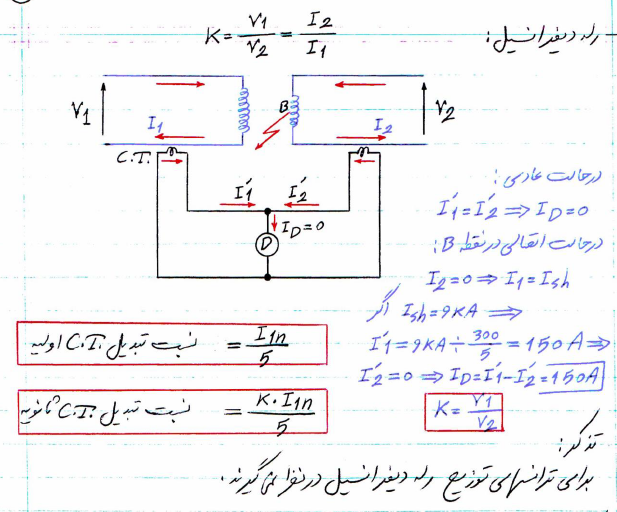 رله دیفرانسیل:
K = V1/V2 = I2/I1
V1
I1
B
I2
V2
C.T.
I'1
I'2
ID=0
D
درحالت عادی:
I'1 = I'2 ⇒ ID=0
درحالت اتصالی در نقطه B:
I2=0 ⇒ I1=Ish
اگر Ish=9KA ⇒
I'1 = 9KA ÷ 300/5 = 150A ⇒
I'2=0 ⇒ ID=I'1-I'2=150A
نسبت تبدیل C.T. اولیه = I1n/5
نسبت تبدیل C.T. ثانویه = K.I1n/5
K = V1/V2
تذکر:
برای ترانسهای توزیع رله دیفرانسیل در نظر نمی گیرند.